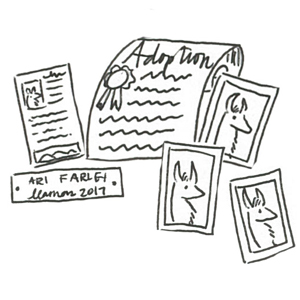 Adoption
ARI FARLEY
llamas 2017